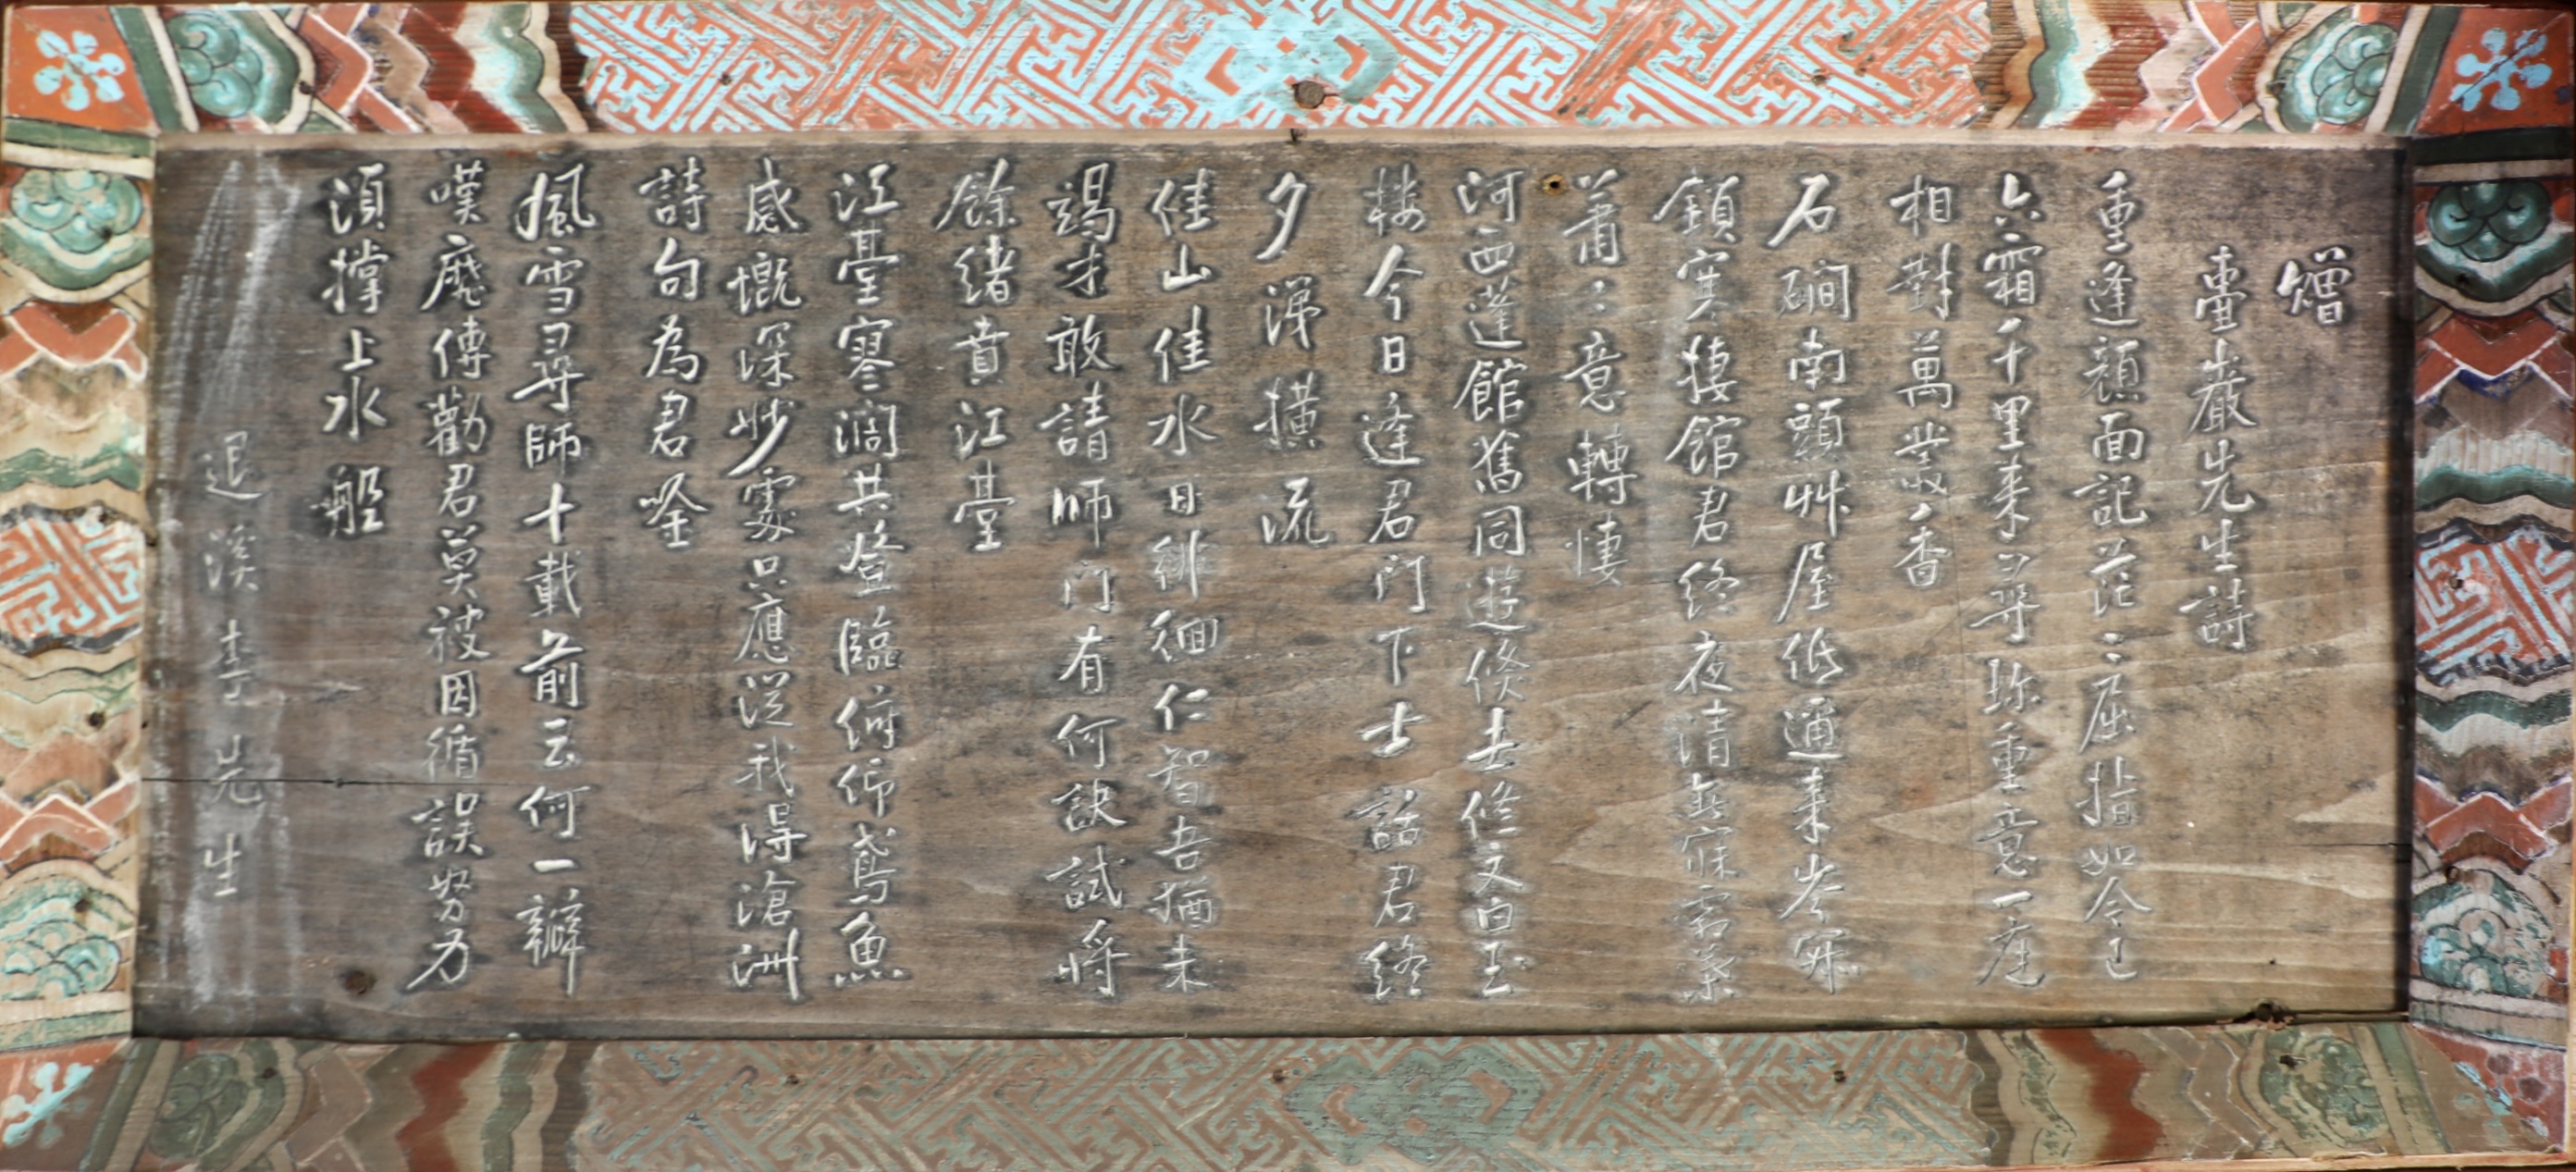 贈
壺巖先生詩
重逢顔面記茫〻屈指如今已
六霜千里来尋珍重意一座
相對萬叢香
石磵南頭艸屋低邇来岑寂
鎖寒棲館君終夜清無寐霜葉
蕭〻意轉悽
河西蓬館舊同遊倐去修文白玉
楼今日逢君門下士話君終
夕涕橫流
佳山佳水日徘徊仁智吾猶未
竭才敢請師門有何訣試將
餘緖賁江臺
江臺寥濶共登臨俯仰鳶魚
感慨深妙處只應從我得滄洲
詩句為君吟
風雪尋師十載前云何一辦
嘆傳勸君莫被因循誤努力
須撑上水船
退溪李先生